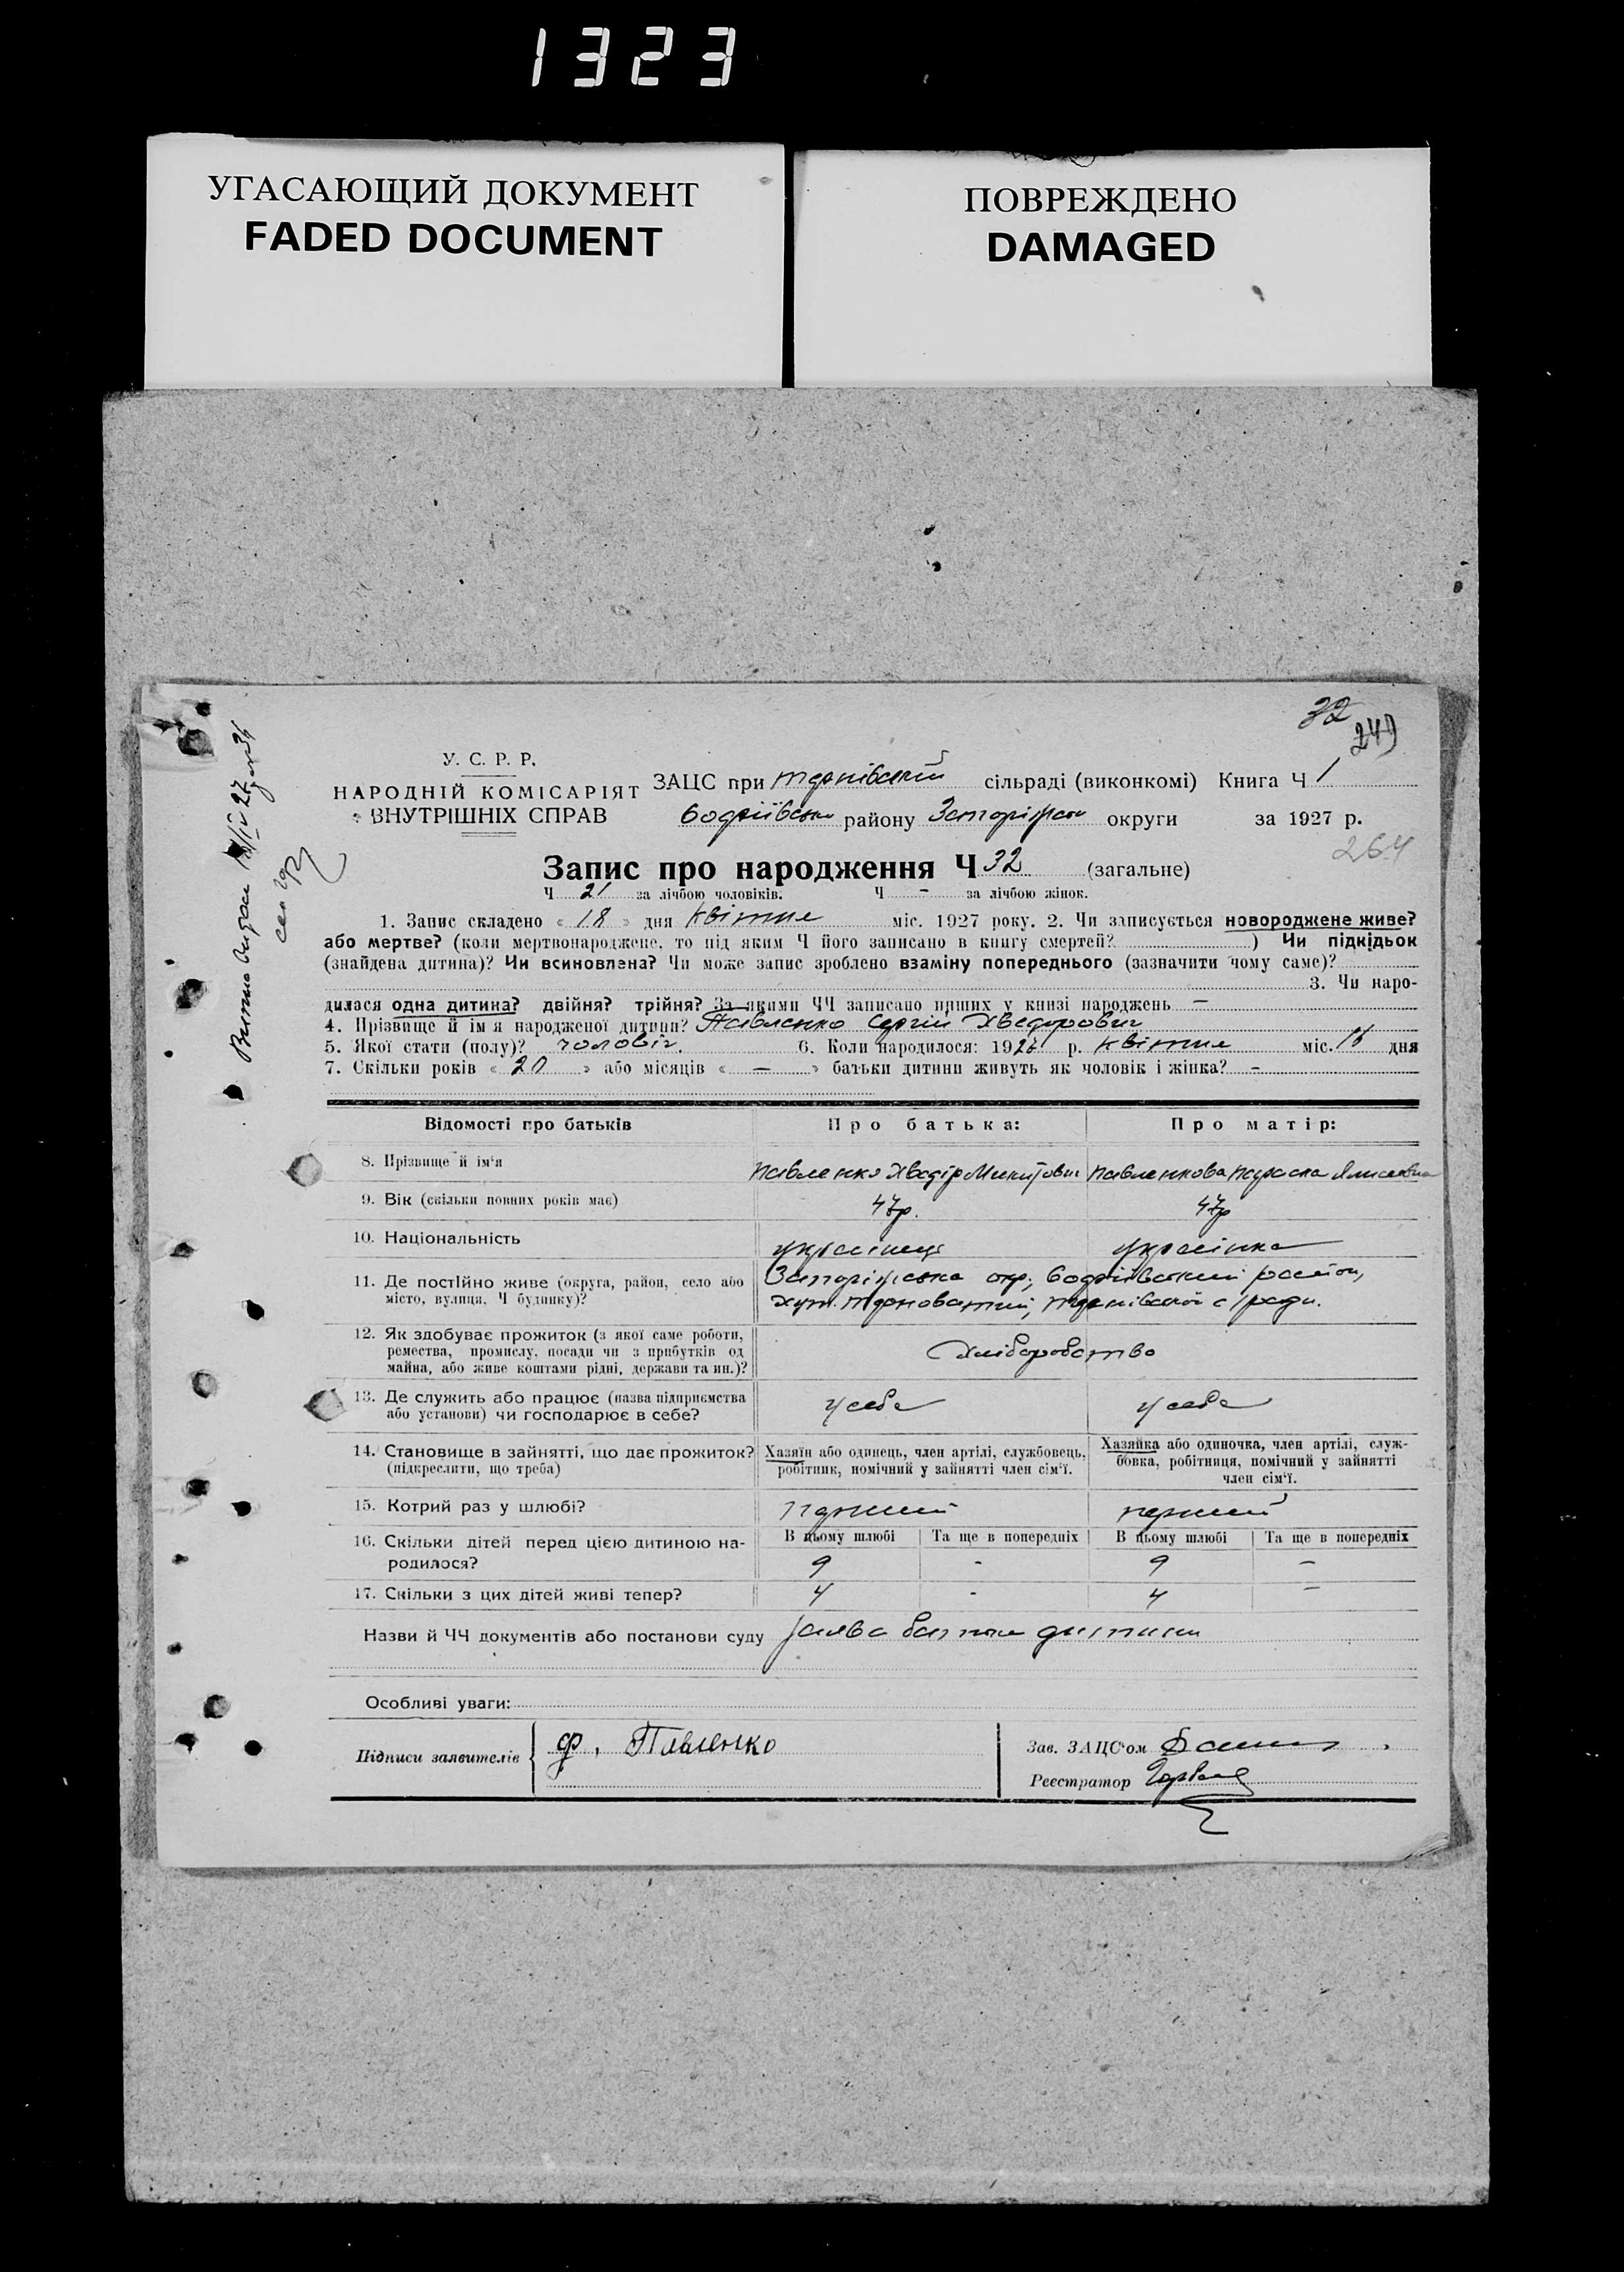 1323
УГАСАЮЩИЙ ДОКУМЕНТ
FADED DOCUMENT
ПОВРЕЖДЕНО
DAMAGED
32
249
У. С. Р. Р.
НАРОДНІЙ КОМІСАРІЯТ
ВНУТРІШНІХ СПРАВ
ЗАЦС при сільраді (виконкомі) Книга Ч 1
району округи за 1927 р.
264
Запис про народження Ч 32 (загальне)
Ч 21 за лічбою чоловіків. Ч - за лічбою жінок.
1. Запис складено « 18 » дня квітня міс. 1927 року. 2. Чи записується новороджене живе?
або мертве? (коли мертвонароджене, то під яким Ч його записано в книгу смертей? ) Чи підкідьок
(знайдена дитина)? Чи всиновлена? Чи може запис зроблено взаміну попереднього (зазначити чому саме)?
3. Чи наро-
дилася одна дитина? двійня? трійня? За якими ЧЧ записано инших у книзі народжень —
4. Прізвище й ім'я народженої дитини? Павленко Сергій Хведорович
5. Якої стати (полу)? чоловіч. 6. Коли народилося: 192 р. квітня міс. дня
7. Скільки років « 20 » або місяців « — » батьки дитини живуть як чоловік і жінка? -
Відомості про батьків Про батька: Про матір:
8. Прізвище й ім'я Павленко Хведір Микитович Павленкова Параска
9. Вік (скільки повних років має) 47р. 47р
10. Національність українець українка
11. Де постійно живе (округа, район, село або Запоріжська окр, район,
місто, вулиця, Ч будинку)? хут. с/ради.
12. Як здобуває прожиток (з якої саме роботи,
ремества, промислу, посади чи з прибутків од
майна, або живе коштами рідні, держави та ин.)? Хліборобство
13. Де служить або працює (назва підприємства
або установи) чи господарює в себе? у себе у себе
14. Становище в зайнятті, що дає прожиток? Хазяїн або одинець, член артілі, службовець, Хазяйка або одиночка, член артілі, служ-
(підкреслити, що треба) робітник, помічний у зайнятті член сім'ї. бовка, робітниця, помічний у зайнятті
член сім'ї.
15. Котрий раз у шлюбі? перший перший
16. Скільки дітей перед цією дитиною на- В цьому шлюбі Та ще в попередніх В цьому шлюбі Та ще в попередніх
родилося? 9 - 9 —
17. Скільки з цих дітей живі тепер? 4 - 4 —
Назви й ЧЧ документів або постанови суду Заява батька дитини
Особливі уваги:
Підписи заявителів Ф. Павленко
Зав. ЗАЦС'ом
Реєстратор